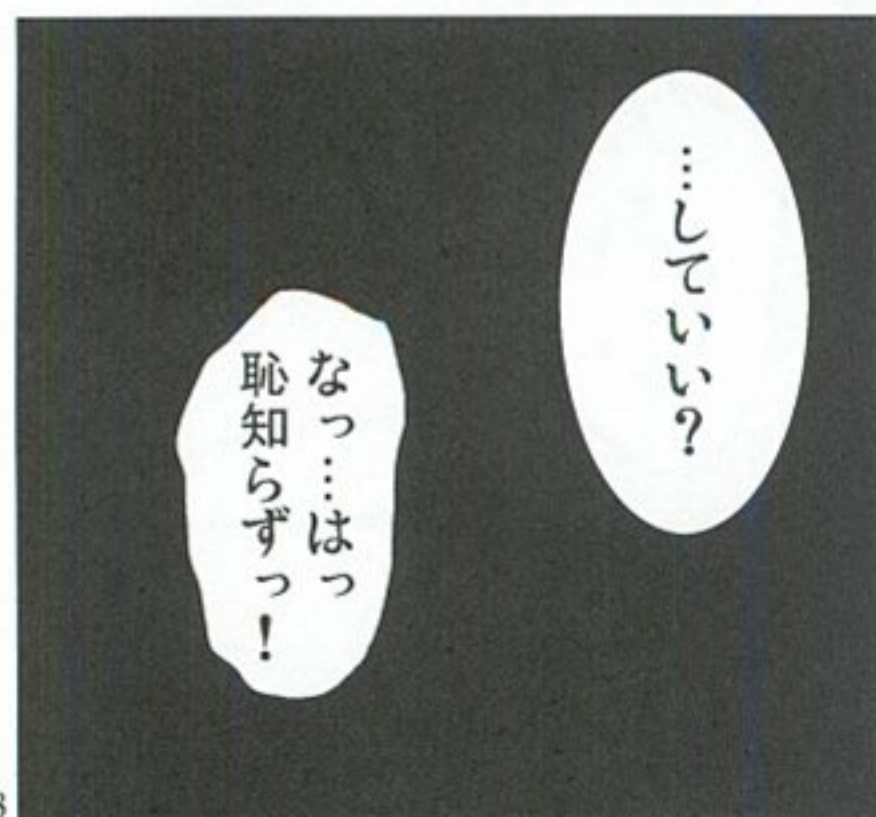 …していい？
なっ…はっ
恥知らずっ！